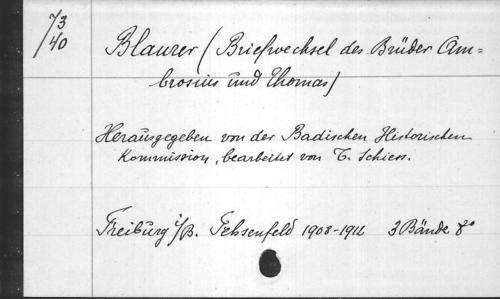 7 3/40
Blaurer (Briefwechsel des Brüder Am=
brosius und Thomas)
Herausgegeben von der Badischen Historischen
Kommission, bearbeitet von T. Schiess.
Freiburg i/B. Fehsenfeld 1908-1912 3 Bände 8°